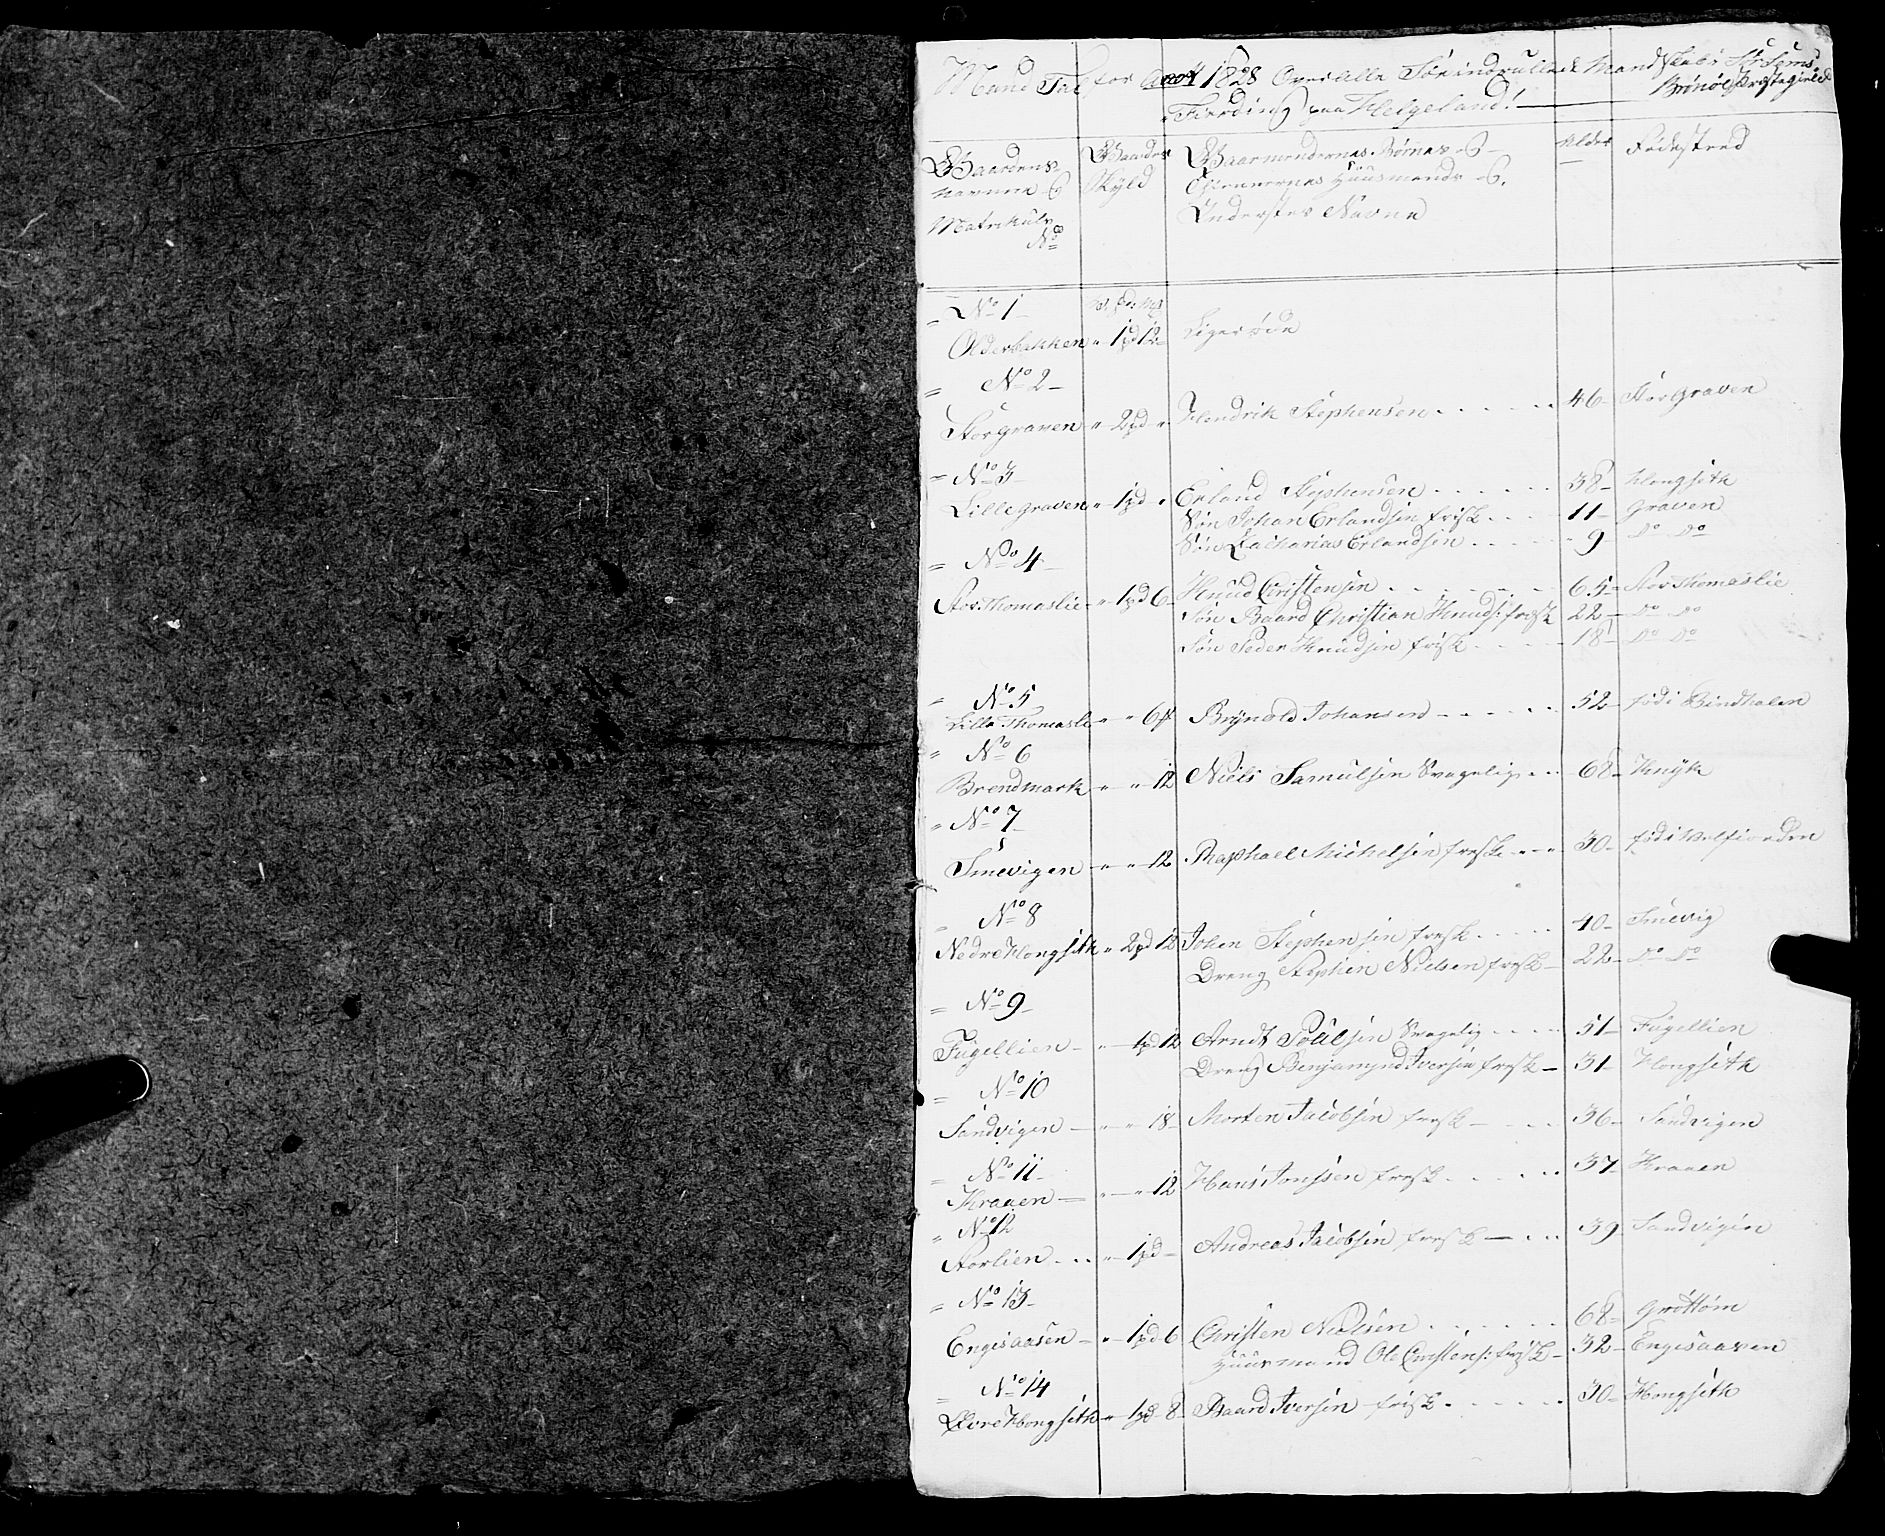 Mand Tal for 1828 Over alle Søeindrullede Mandskabs Sør Søms
Fierding paa Helgeland! Brønøe Præstegield
Gaardens navne & Matrikuls No
Gaardes Skyld
Gaarmendernes Børnes &
Husmends &
Inderstes Navne
Alder
Fødested
No 1
Olderbakken " 1pd 12 Ligeøde
No 2
Storgraven " 2pd " Hendrik Stephensen 46 Storgraven
No 3
Lillegraven " 1pd " Erland Stephensen 38 Hongseth
Søn Johan Erlandsen frisk 11 Graven
Søn Zacharias Erlandsen 9 Do Do
No 4
Stor Thomaslie " 1pd 6 Knud Christensen 65 Stor Thomaslie
Søn Baard Christian Knuds: frisk 22 Do Do
Søn Peder Knudsen frisk 18 Do Do
No 5
Lille Thomasli " " 6 Brynild Johansen 52 fød i Bindhalen
No 6
Brendmark " " 12 Niels Samulsen Svagelig 68 Knyk
No 7
Smevigen " " 12 Raphael Michelsen frisk 30 fød i Velfiorden
No 8
Nedre Hongseth " 2pd 12 Johan Stephensen frisk 40 Smevig
Dreng Stephen Nielsen frisk 22 Do Do
No 9
Fugellien " 1pd 12 Arndt Poulsen Svagelig 51 Fugellien
Dreng Benjamynd Iversen frisk 31 Hongseth
No 10
Sandvigen " " 18 Morten Jacobsen frisk 36 Sandvigen
No 11
Kraaen " " 12 Hans Jonssen frisk 37 Kraaen
No 12
Storlien " 1pd Andreas Jacobsen frisk 39 Sandvigen
No 13
Engesaasen " 1pd 6 Christen Nielsen 68 Grøttøm
Huusmand Ole Christens: frisk 32 Engesaasen
No 14
Øvre Hongseth " 1pd 8 Baard Iversen frisk 30 Hongseth